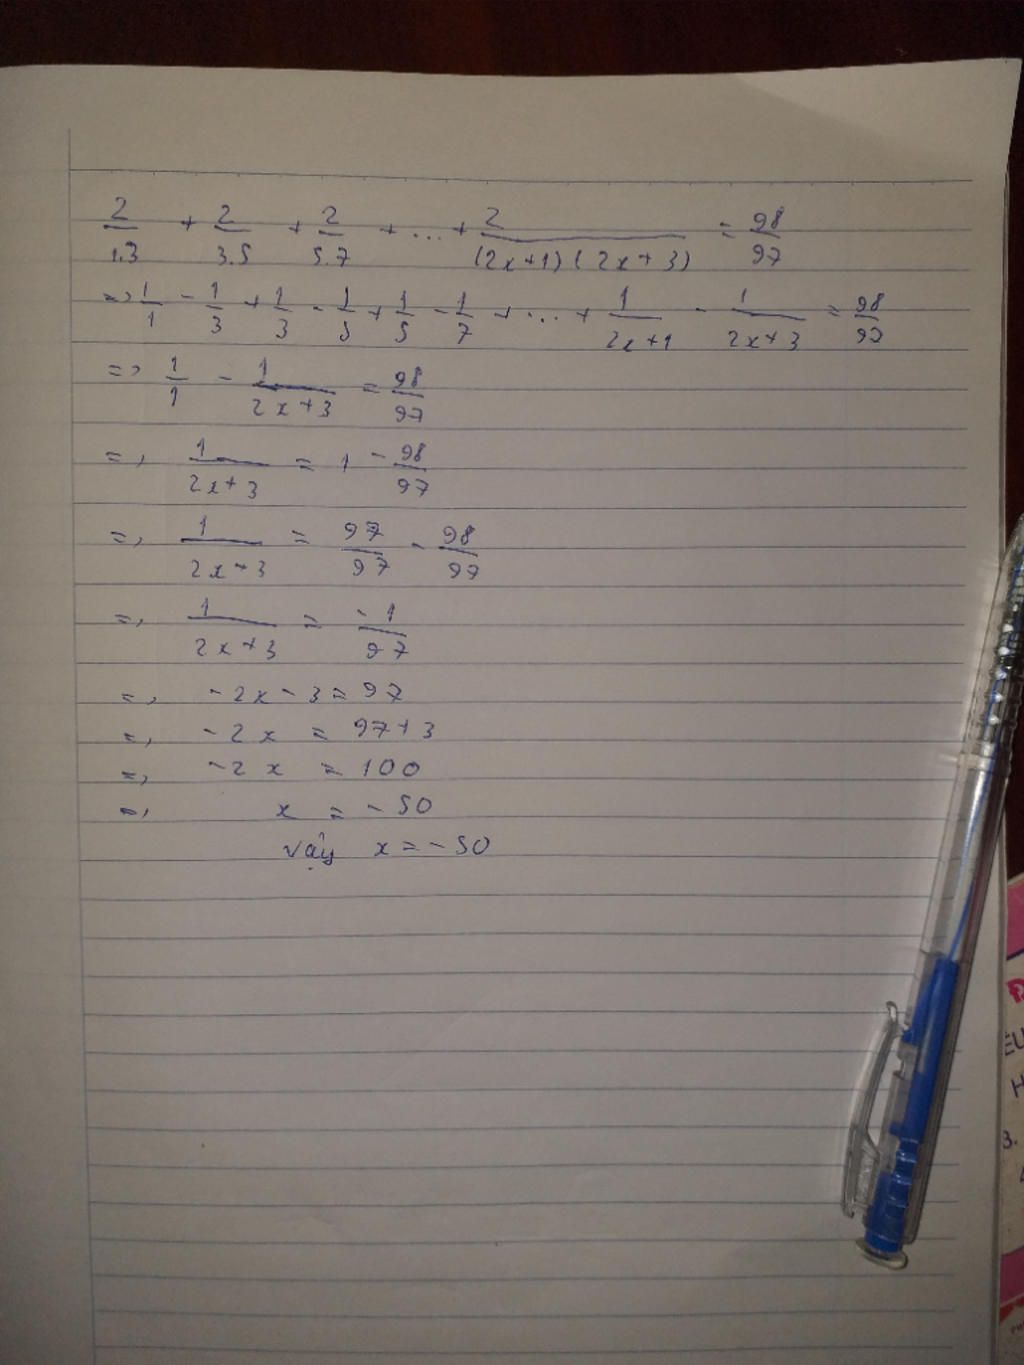 2/1.3 + 2/3.5 + 2/5.7 + ... + 2/(2x+1)(2x+3) = 98/97
=> 1/1 - 1/3 + 1/3 - 1/5 + 1/5 - 1/7 + ... + 1/2x+1 - 1/2x+3 = 98/97
=> 1/1 - 1/2x+3 = 98/97
=> 1/2x+3 = 1 - 98/97
=> 1/2x+3 = 97/97 - 98/97
=> 1/2x+3 = -1/97
=> -2x - 3 = 97
=> -2x = 97+3
=> -2x = 100
=> x = -50
vậy x = -50
ÊU
H
3.